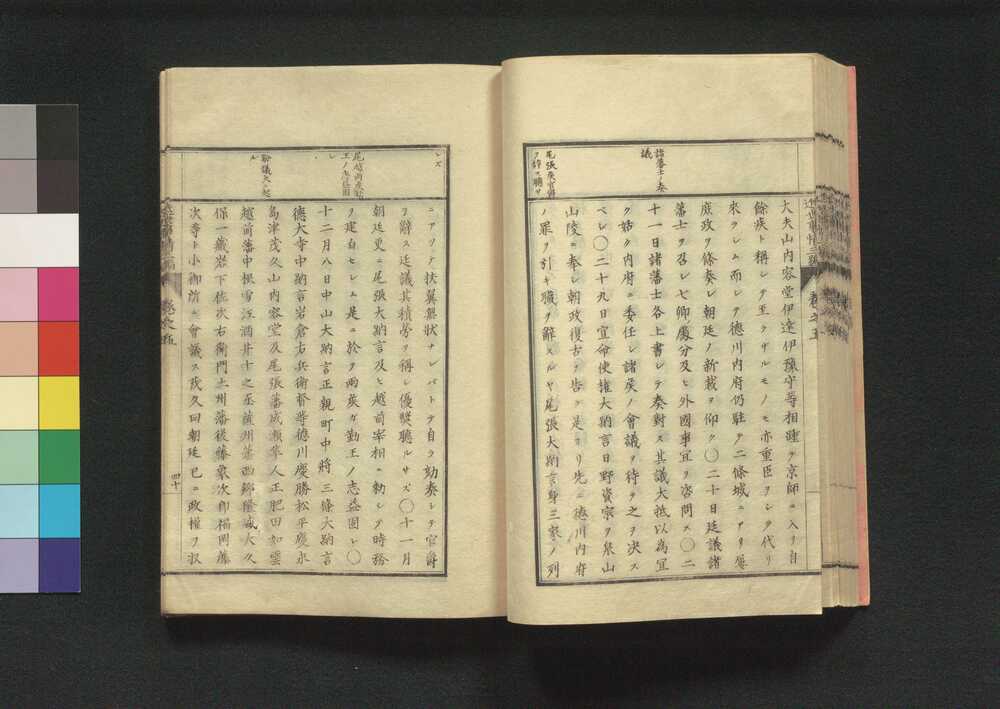 諸藩士ノ奏
議
尾張侯官爵
ヲ辞ス聴サ
大夫山内容堂伊達伊豫守等相踵ヲ京師ニ入リ自
餘疾ト稱シテ至ラザルモノモ亦重臣ヲシテ代リ
來ラシム而シテ德川内府仍駐テ二條城ニアリ屡
庶政ヲ條奏シ朝廷ノ新裁ヲ仰ク〇二十日廷議諸
藩士ヲ召シ七卿處分及ヒ外國事宜ヲ咨問ス〇二
十一日諸藩士各上書シテ奏對ス其議大抵以為宜
ク姑ク内府ニ委任シ諸矦ノ會議ヲ待テ之ヲ决ス
ベシ〇二十九日宣命使權大納言日野資宗ヲ泉山
山陵ニ奉シ朝政復古ヲ告グ是ヨリ先ニ德川内府
ノ罪ヲ引キ職ヲ辭スルヤ尾張大納言身三家ノ列
近世事情三編
卷之五
シズ
尾越両矦
王ノ志益固
シ
紛議大ニ起
ル
ニアリテ扶翼無狀ナレバトテ自ラ劾奏シテ官爵
ヲ辭ス廷議其積勞ヲ稱シ優奬聴ルサズ〇十一月
朝廷更ニ尾張大納言及ヒ越前宰相ニ勅シテ時務
ヲ建白セシム是ニ於テ兩矦ガ勤王ノ志益固シ〇
十二月八日中山大納言正親町中將三條大納言
德大寺中納言岩倉右兵衛督等德川慶勝松平慶永
島津茂久山内容堂及尾張藩成瀬隼人正肥田如雲
越前藩中根雪江酒井十之丞薩州藩西鄉隆盛大久
保一藏岩下佐次右衛門土州藩後藤象次郎福岡藤
次等ト小御所ニ會議ス茂久曰朝廷已ニ政權ヲ収
近世事情三編
卷之五
四十